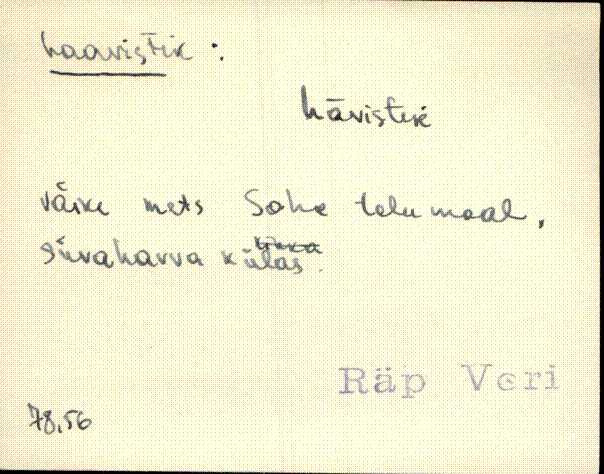 haavistik :
hāvistik
väike mets Sohe talu maal,
Süvahavva külas.
Räp Veri
78,56